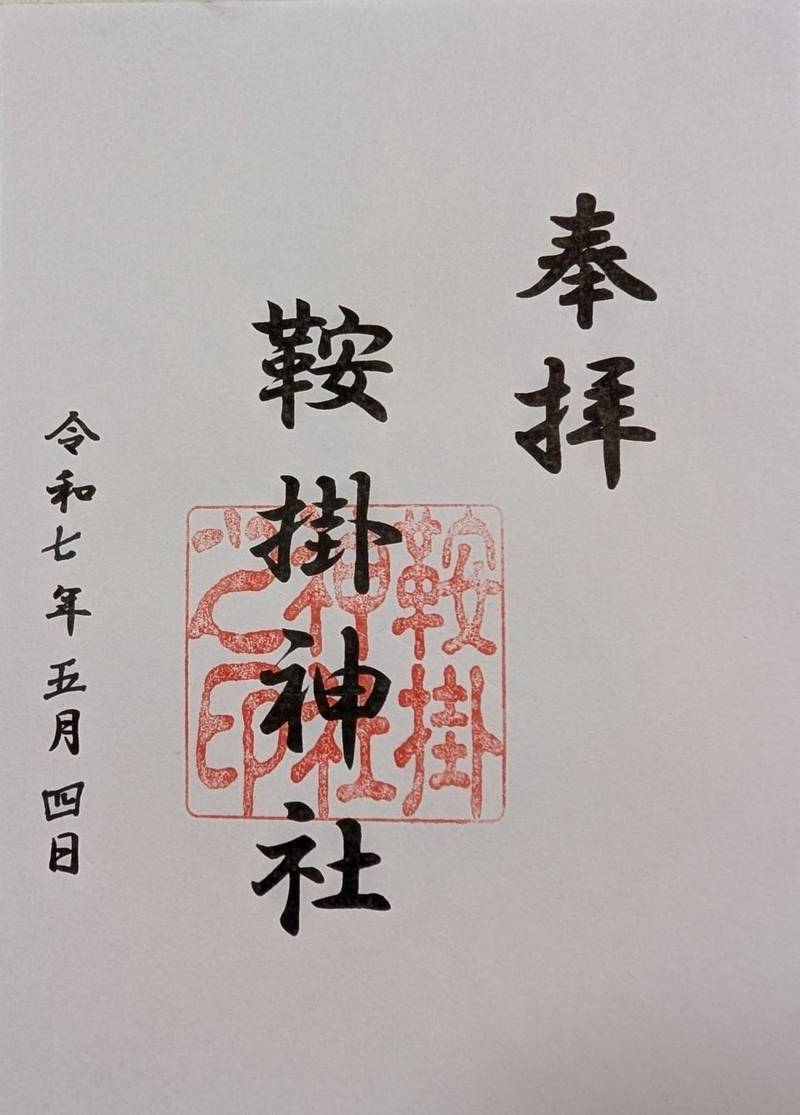 奉拝
鞍掛神社
鞍掛
神社
之印
令和七年五月四日